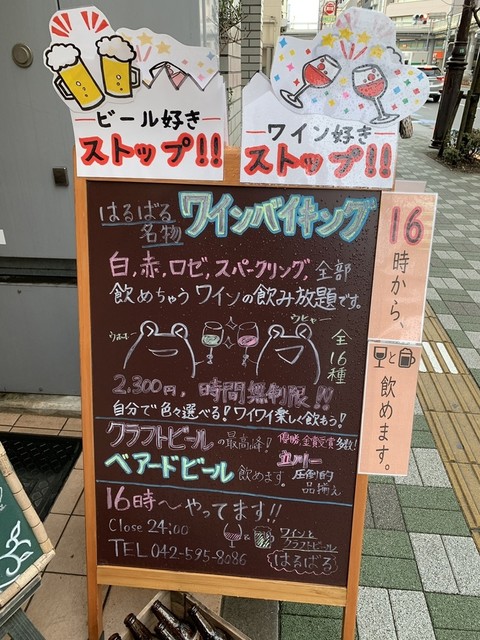 ビール好き
ストップ!!
ワイン好き
ストップ!!
はるばる
名物
ワインバイキング
白,赤,ロゼ,スパークリング,全部
飲めちゃうワインの飲み放題です。
ウホーホー
ウヒャー
全16種
2,300円,時間無制限!!
自分で色々選べる!ワイワイ楽しく飲もう!
クラフトビールの最高峰!
優勝,金賞受賞多数!
ベアードビール飲めます。
立川一
圧倒的
品揃え
16時〜やってます!!
Close 24:00
TEL 042-595-8086
ワインと
クラフトビール
はるばる
16時から、
と
飲めます。